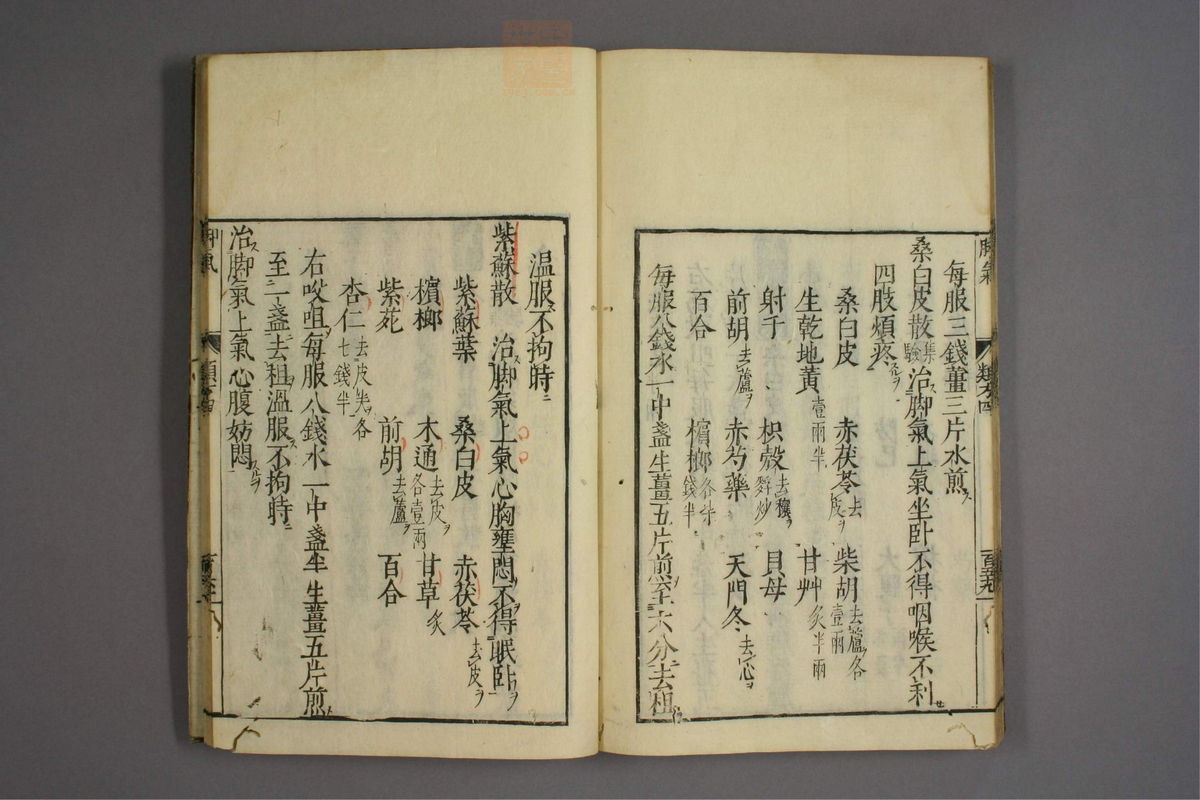 脚氣
類方四
百五十九
每服三錢薑三片水煎ス
桑白皮散集驗治ス脚氣上氣坐卧不得咽喉不利セ
四肢煩疼スルヲ
桑白皮 赤茯苓去皮ヲ 柴胡去蘆ヲ各壹兩
生乾地黃壹兩半 甘艸炙半兩
射干 枳殼去穰ヲ麩炒 貝母
前胡去蘆ヲ 赤芍藥 天門冬去心ヲ
百合 檳榔各柒錢半
每服八錢水一中盞生薑五片煎至六分去柤ヲ
溫服不拘時ニ
紫蘇散 治ス脚氣上氣心胸壅悶不得眠卧
紫蘇葉 桑白皮 赤茯苓去皮ヲ
檳榔 木通去皮ヲ各壹兩 甘草炙
紫菀 前胡去蘆ヲ 百合
杏仁去皮尖ヲ各七錢半
右㕮咀每服八錢水一中盞半生薑五片煎
至一盞去柤溫服不拘時ニ
治ス脚氣上氣心腹妨悶スルヲ
脚氣
類方四